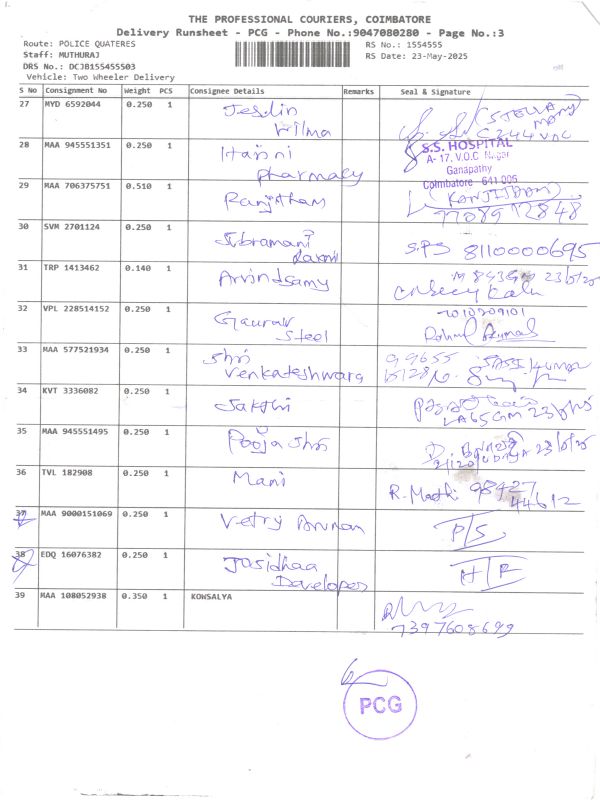 THE PROFESSIONAL COURIERS, COIMBATORE
Delivery Runsheet - PCG - Phone No.:9047080280 - Page No.:3
Route: POLICE QUATERES RS No.: 1554555
Staff: MUTHURAJ RS Date: 23-May-2025
DRS No.: DCJB155455503
Vehicle: Two Wheeler Delivery
S No Consignment No Weight PCS Consignee Details Remarks Seal & Signature
27 MYD 6592044 0.250 1 Jesdin (STELLA MARY)
Wilma C 244 VOC
28 MAA 945551351 0.250 1 Harini S.S. HOSPITAL
Pharmacy A- 17, V.O.C Nagar
Ganapathy
Coimbatore - 641 006
29 MAA 706375751 0.510 1 Ranjitham (RANJITHAM)
30 SVM 2701124 0.250 1 Sibramani S.P.S 8110000695
Laxmi
31 TRP 1413462 0.140 1 Arvindsamy 23/5/25
32 VPL 228514152 0.250 1 Gaurav
Steel
33 MAA 577521934 0.250 1 Shri 99655 SASI KUMAR
Venkateshwara
34 KVT 3336082 0.250 1 Sakthi
35 MAA 945551495 0.250 1 Pooja Shri 23/5/25
36 TVL 182908 0.250 1 Mani R. Mathi 98427
44612
37 MAA 9000151069 0.250 1 Vetry Arunan P/S
38 EDQ 16076382 0.250 1 Jasidhaa H/F
Developers
39 MAA 108052938 0.350 1 KOWSALYA
7397608699
PCG